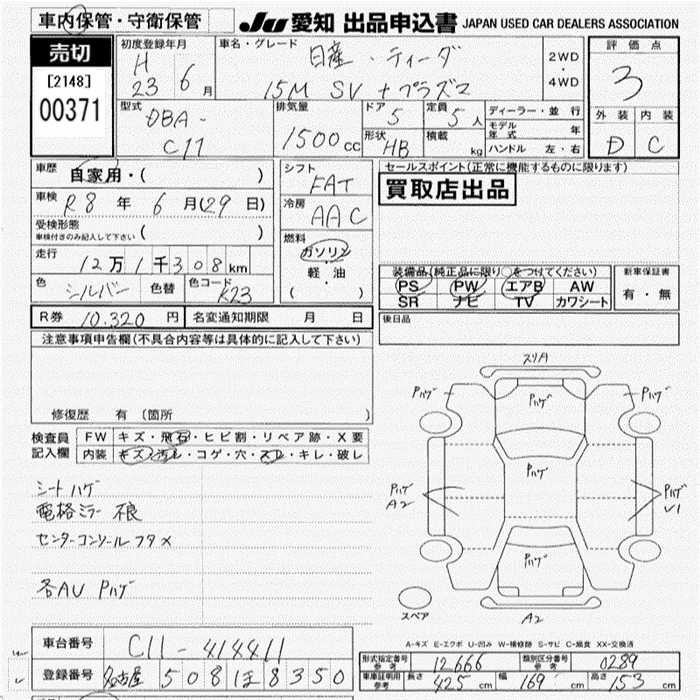 車内保管・守衛保管
JU 愛知 出品申込書 JAPAN USED CAR DEALERS ASSOCIATION
売切
[2148]
00371
初度登録年月
H 23 6 月
車名・グレード
日産・ティーダ
15M SV +プラズマ
2WD
・
4WD
評価点
3
外装 内装
D C
型式
DBA-
C11
排気量
1500 cc
ドア 5
定員 5 人
形状 HB
積載 kg
ディーラー・並行
モデル年式 年
ハンドル 左・右
車歴
自家用・( )
車検
R8 年 6 月(29 日)
受検形態
車検付きのみ記入して下さい ( )
走行
12万1千308km
色 シルバー 色替 色コード K23
シフト
FAT
冷房
AAC
燃料
ガソリン
軽・油
・
( )
セールスポイント(正常に機能するものに限ります)
買取店出品
装備品(純正品に限り○をつけてください)
PS PW エアB AW
SR ナビ TV カワシート
新車保証書
有・無
R券 10,320 円 名変通知期限 月 日
後日品
注意事項申告欄(不具合内容等は具体的に記入して下さい)
修復歴 有 (箇所 )
検査員
記入欄
FW キズ・飛石・ヒビ割・リペア跡・X要
内装 キズ・汚レ・コゲ・穴・スレ・キレ・破レ
シートハゲ
電格ミラー 不良
センターコンソールフタ×
各AU Pハゲ
スリA
Pハゲ Pハゲ Pハゲ
Pハゲ
Pハゲ
A2
Pハゲ
U1
Pハゲ
スペア
A2
A-キズ E-エクボ U-凹み W-補修跡 S-サビ C-腐食 XX-交換済
車台番号 C11-414411
登録番号 名古屋 508 ほ 8350
型式指定番号
参考 12666
類別区分番号
参考 0289
車庫証明用
参考
長さ 425 cm 幅 169 cm 高さ 153 cm